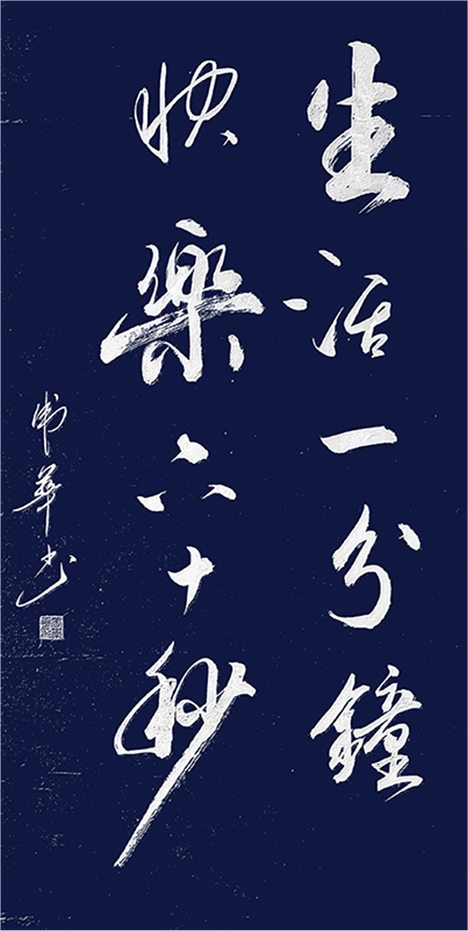 生活一分鐘
快樂六十秒
華书